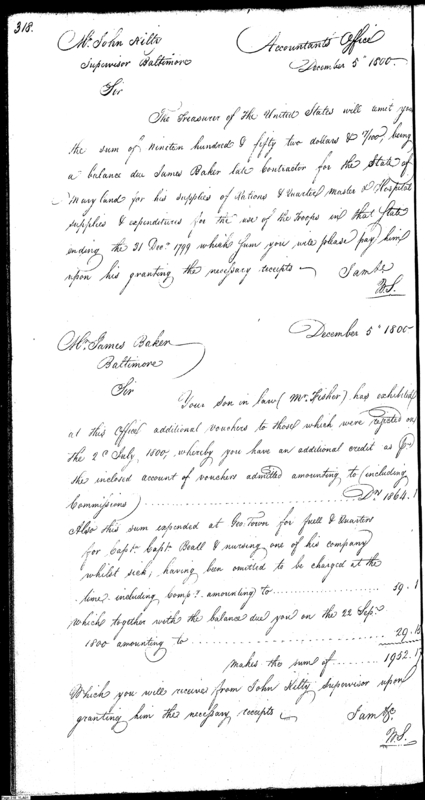 318.
Mr. John Kilty
Accountants Office
Supervisor Baltimore
December 5th 1800.
Sir
The Treasurer of the United States will remit you
the sum of Nineteen hundred & fifty two dollars & /100, being
a balance due James Baker late Contractor for the State of
Maryland for his supplies of Rations & Quarter Master & Hospital
supplies & expenditures for the use of the Troops in that State
ending the 31 Decr. 1799 which sum you will please pay him
upon his granting the necessary receipts
I am &c
W.S.
December 5th 1800
Mr. James Baker
Baltimore
Sir
Your son in law (Mr. Fisher) has exhibited
at this Office additional vouchers to those which were rejected on
the 2d July, 1800 whereby you have an additional credit as
the inclosed account of vouchers admitted amounting to (including
Commissions) Drs 1864.1
Also this sum expended at Geo. Town for fuell & Quarters
for Capt. Capt. Beall & nursing one of his company
whilst sick, having been omitted to be charged at the
time including Comps. amounting to 59.1
which together with the balance due you on the 22 Sep.
1800 amounting to 29.
makes the sum of 1952.17
Which you will receive from John Kilty supervisor upon
granting him the necessary receipts
I am &c.
W.S.